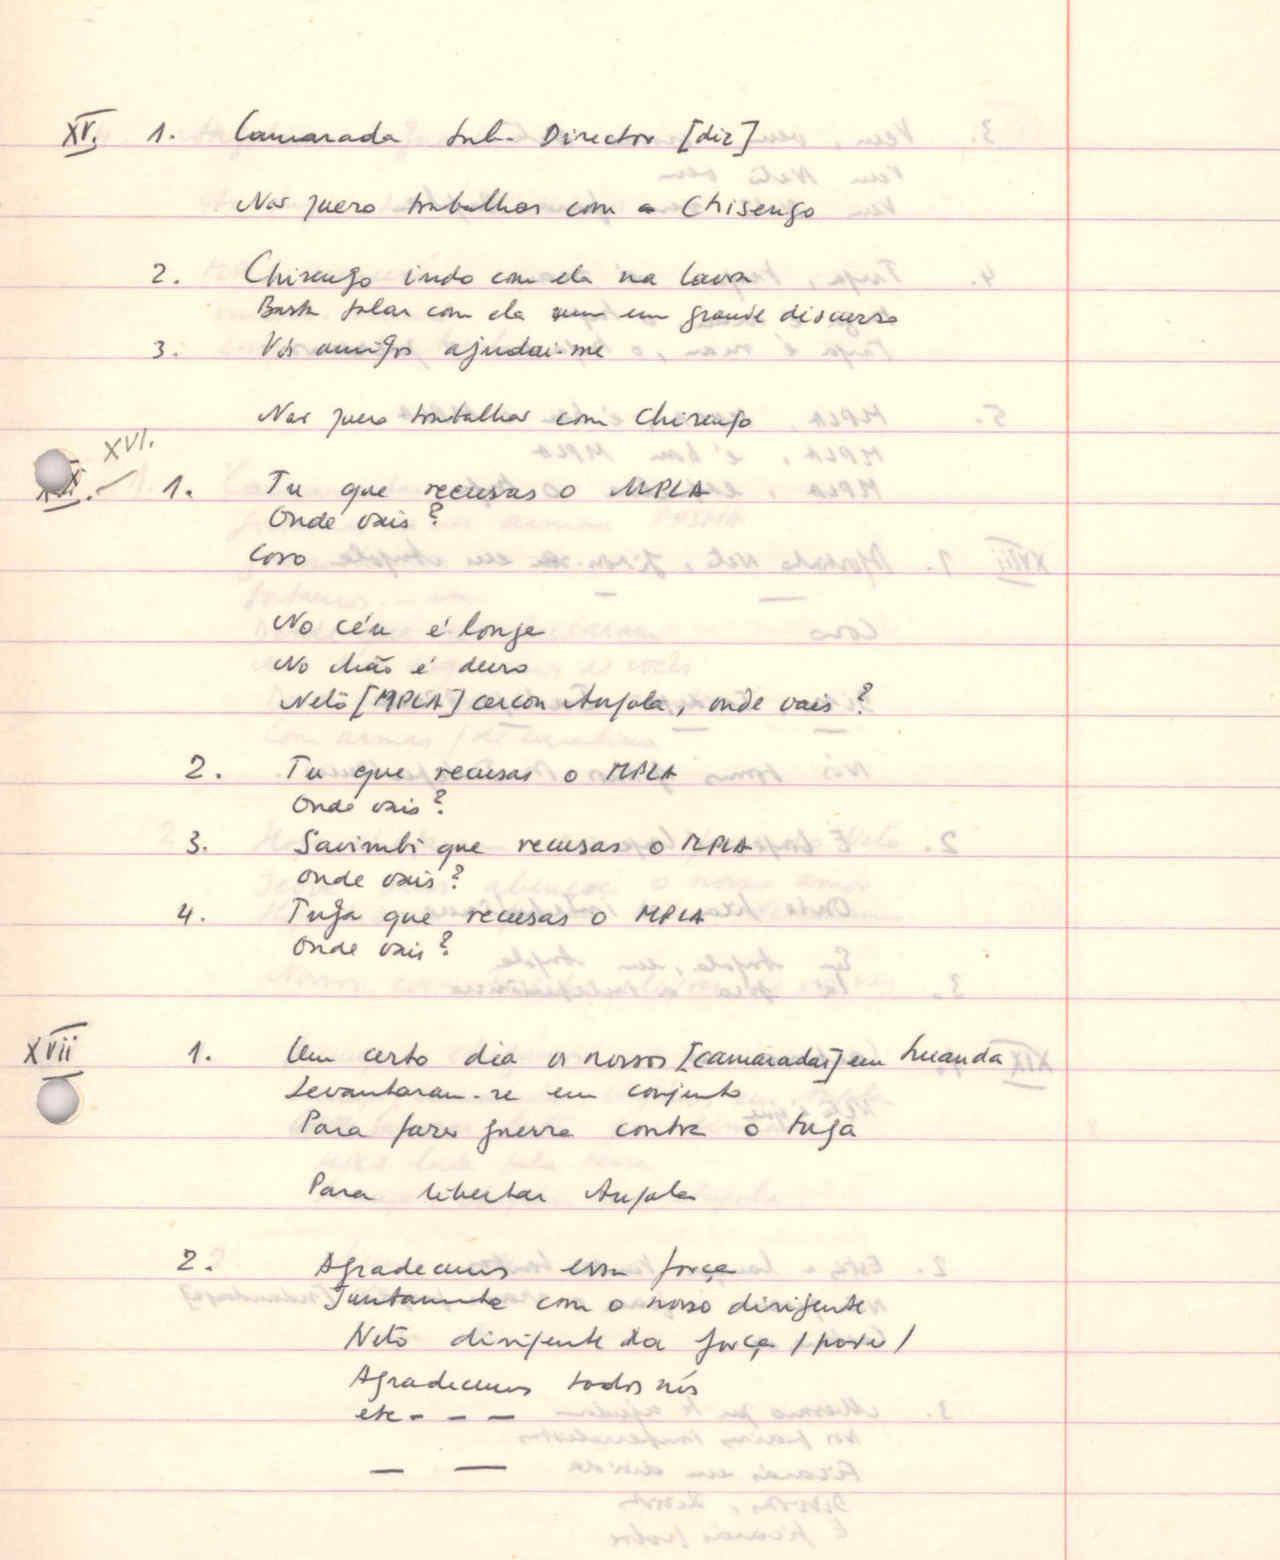 XV. 1. Camarada Sub-Director [diz]
Não quero trabalhar com a Chisengo
2. Chisengo indo com ela na lavra
Basta falar com ela num grande discurso
3. Vós amigos ajudai-me
Não quero trabalhar com Chisengo
XVI.
1. Tu que recusas o MPLA
Onde vais?
Coro
No céu é longe
No chão é duro
Neto [MPLA] cercou Angola, onde vais?
2. Tu que recusas o MPLA
Onde vais?
3. Savimbi que recusas o MPLA
Onde vais?
4. Tuga que recusas o MPLA
Onde vais?
XVII 1. Um certo dia os nossos [camaradas] em Luanda
Levantaram-se em conjunto
Para fazer guerra contra o tuga
Para libertar Angola
2. Agradecemos essa força
Juntamente com o nosso dirigente
Neto dirigente da força /povo/
Agradecemos todos nós
etc - - -
— —